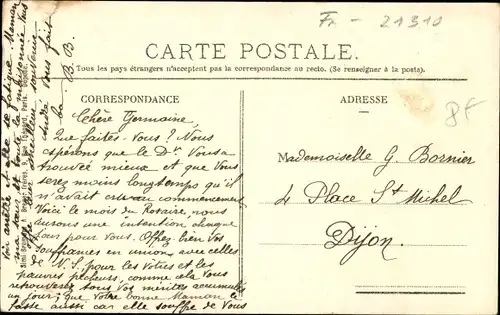 Fr. - 21310
CARTE POSTALE.
Tous les pays étrangers n'acceptent pas la correspondance au recto. (Se renseigner à la poste).
CORRESPONDANCE
ADRESSE
8f
Chère Germaine,
Que faites-Vous ? Nous
espérons que le Dr. Vous a
trouvée mieux et que Vous
serez moins longtemps qu'il
n'avait cru au commencement
Voici le mois du Rosaire, nous
aurons une intention chaque
jour pour Vous. Offrez bien Vos
souffrances en union avec celles
de N. S. pour les Vôtres et les
pauvres pécheurs, comme cela Vous
retrouverez tous Vos mérites accumulés
un jour; que Votre bonne Maman le
fasse aussi car elle souffre de Vous
voir arrêtée et elle se fatigue. Maman
meilleur souvenir
André Vous fait
B. B.
Mademoiselle G. Bornier
4 Place St Michel
Dijon.